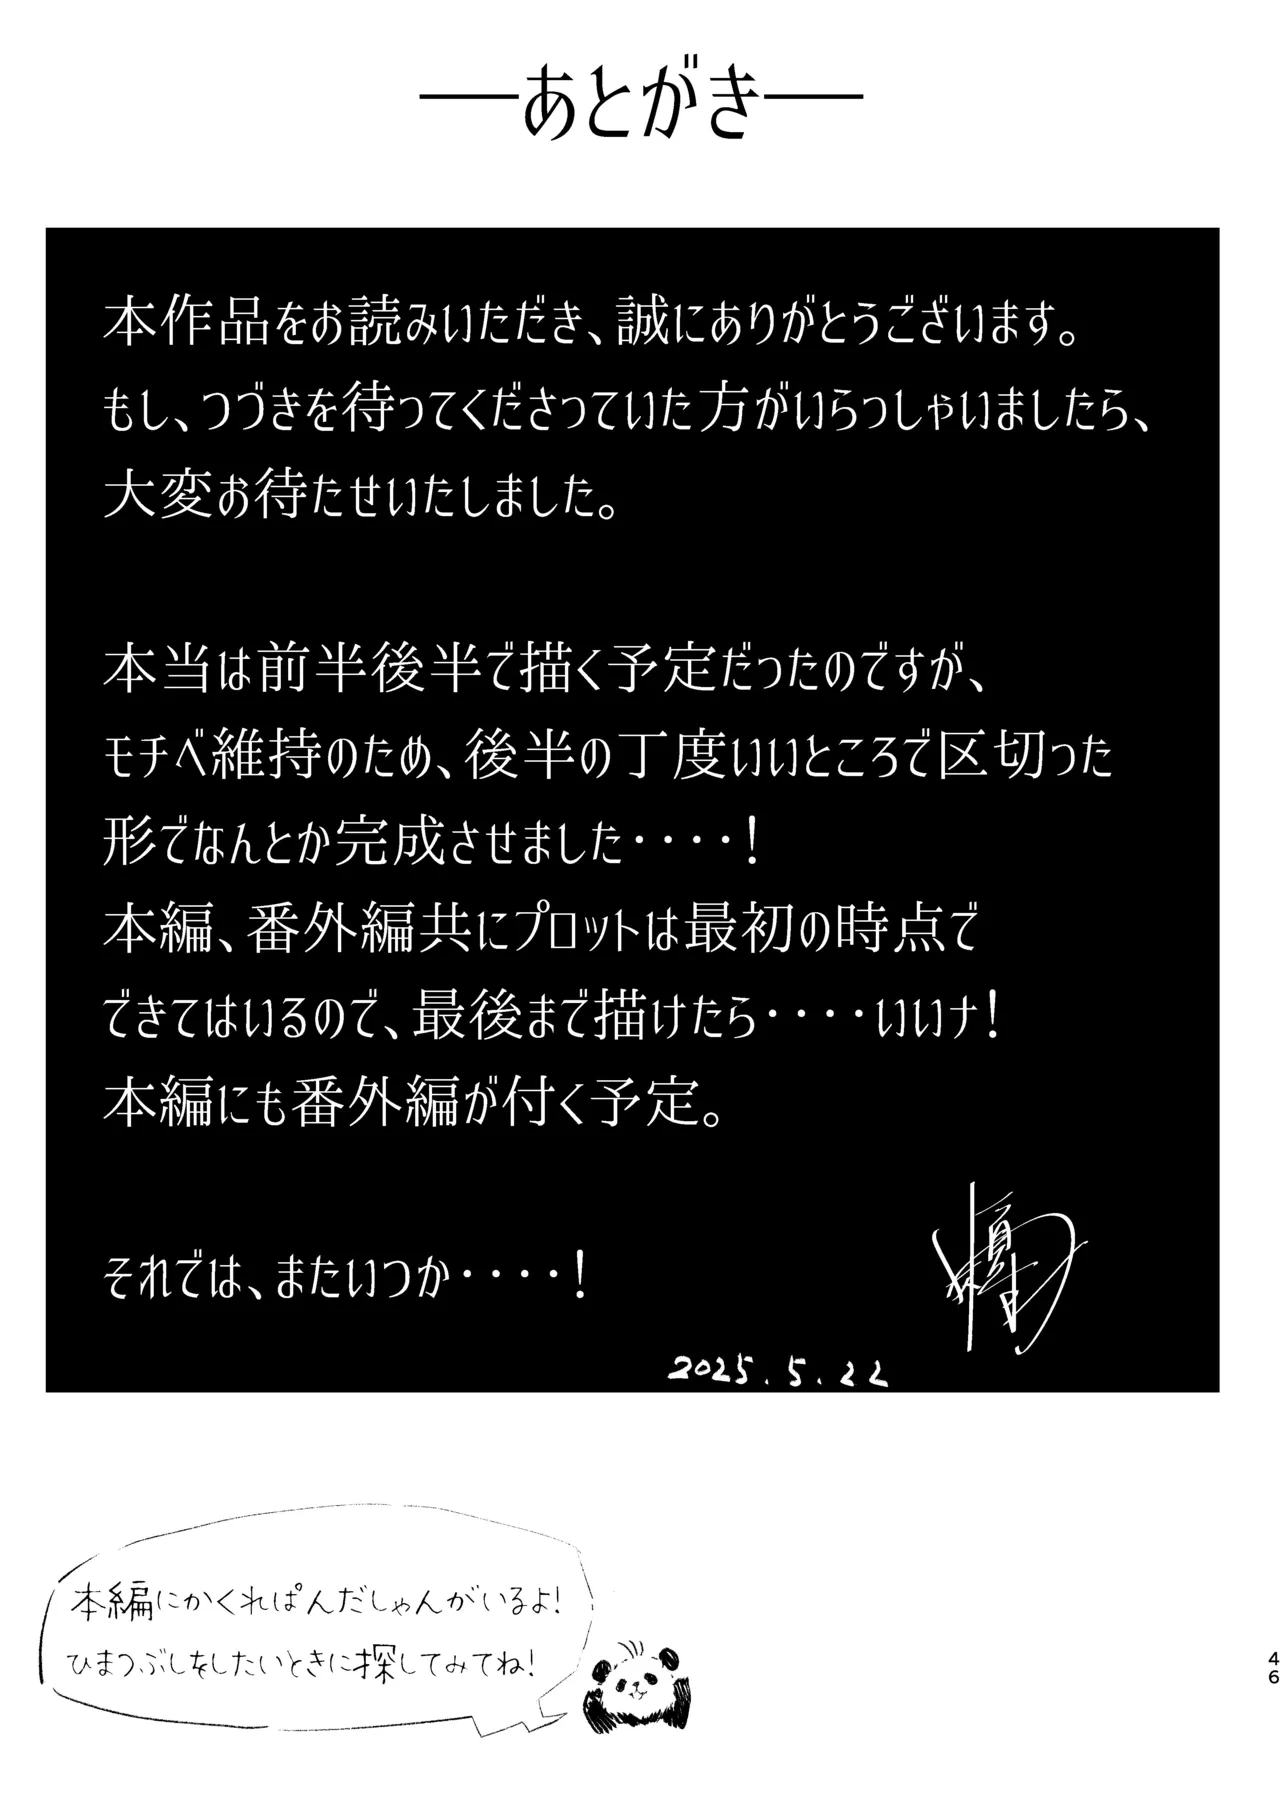 あとがき
本作品をお読みいただき、誠にありがとうございます。
もし、つづきを待ってくださっていた方がいらっしゃいましたら、
大変お待たせいたしました。
本当は前半後半で描く予定だったのですが、
モチベ維持のため、後半の丁度いいところで区切った
形でなんとか完成させました・・・・！
本編、番外編共にプロットは最初の時点で
できてはいるので、最後まで描けたら・・・・いいナ！
本編にも番外編が付く予定。
それでは、またいつか・・・・！
2025.5.22
本編にかくれぱんだしゃんがいるよ！
ひまつぶしをしたいときに探してみてね！
46